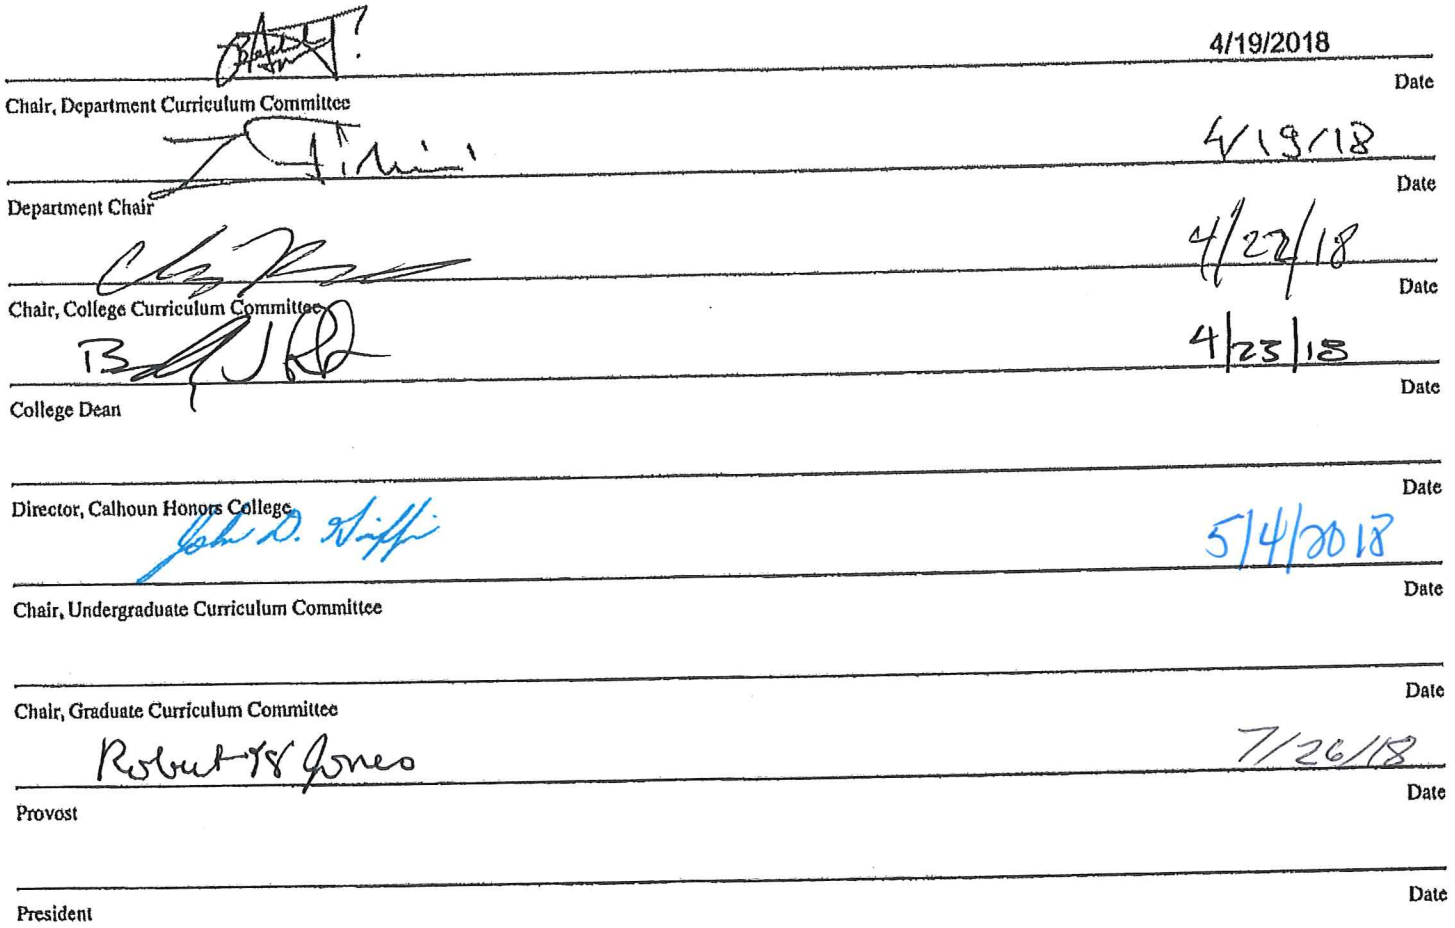 4/19/2018
Chair, Department Curriculum Committee Date
4/19/18
Department Chair Date
4/22/18
Chair, College Curriculum Committee Date
4/23/18
College Dean Date
Director, Calhoun Honors College Date
John D. Griffi 5/4/2018
Chair, Undergraduate Curriculum Committee Date
Chair, Graduate Curriculum Committee Date
Robert H Jones 7/26/18
Provost Date
President Date